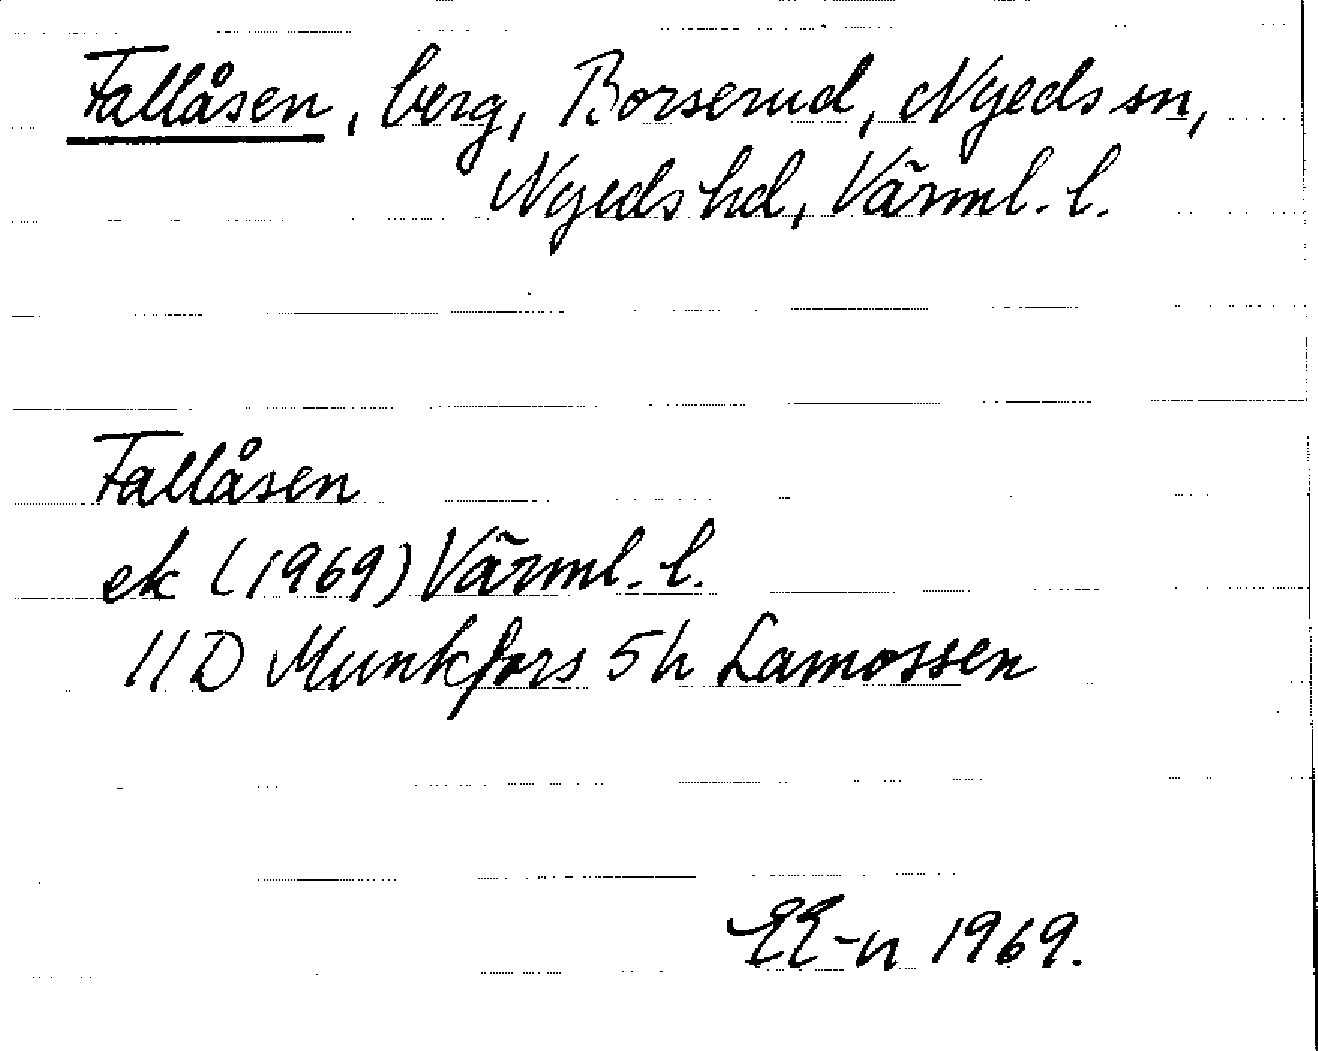 Fallåsen, berg, Borserud, Nyeds sn,
Nyeds hd, Värml. l.
Fallåsen
ek (1969) Värml. l.
11D Munkfors 5h Lamossen
EE-n 1969.